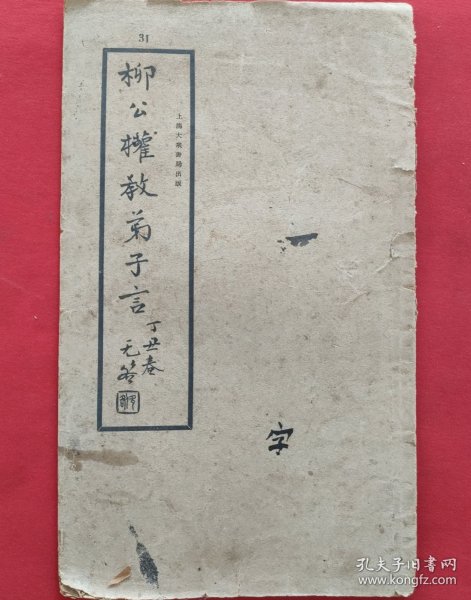 31
柳公權教弟子言
丁丑春
上海大眾書局出版
字
孔夫子旧书网
www.kongfz.com